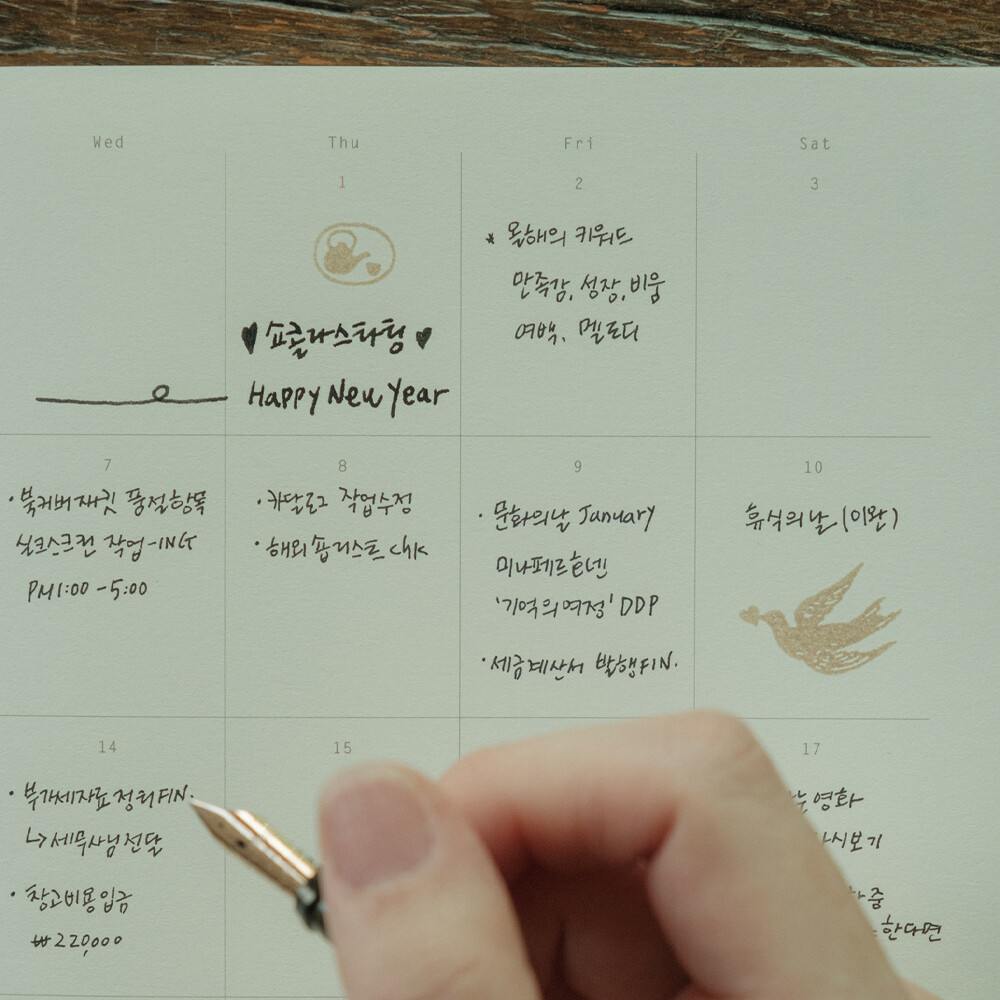 Wed
Thu
Fri
Sat
1
2
3
♥ 쇼콜라스타팅 ♥
Happy New Year
* 올해의 키워드
만족감, 성장, 비움
여백, 멜로디
7
8
9
10
· 북커버재킷 품절항목
실크스크린 작업-ING
PM1:00 - 5:00
· 카달로그 작업수정
· 해외숍리스트 chk
· 문화의날 January
미나페르호넨
'기억의여정' DDP
· 세금계산서 발행FIN.
휴식의날 (이완)
14
15
17
· 부가세자료정리FIN.
↳ 세무사님전달
· 창고비용입금
₩220,000
영화
다시보기
중
한다면